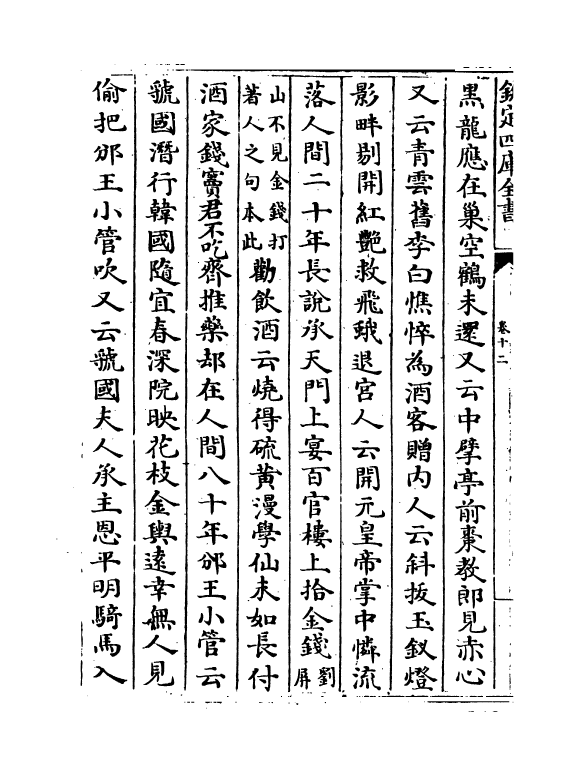 欽定四庫全書
卷十二
黒龍應在巢空鶴未還又云中擘亭前棗教郎見赤心
又云青雲舊李白憔悴為酒客贈内人云斜拔玉釵燈
影畔剔開紅艷救飛蛾退宮人云開元皇帝掌中憐流
落人間二十年長説承天門上宴百官樓上拾金錢劉屏
山不見金錢打著人之句本此勸飲酒云燒得硫黄漫學仙未如長付
酒家錢竇君不吃齊推藥却在人間八十年邠王小管云
虢國潛行韓國隨宜春深院映花枝金輿逺幸無人見
偷把邠王小管吹又云虢國夫人承主恩平明騎馬入